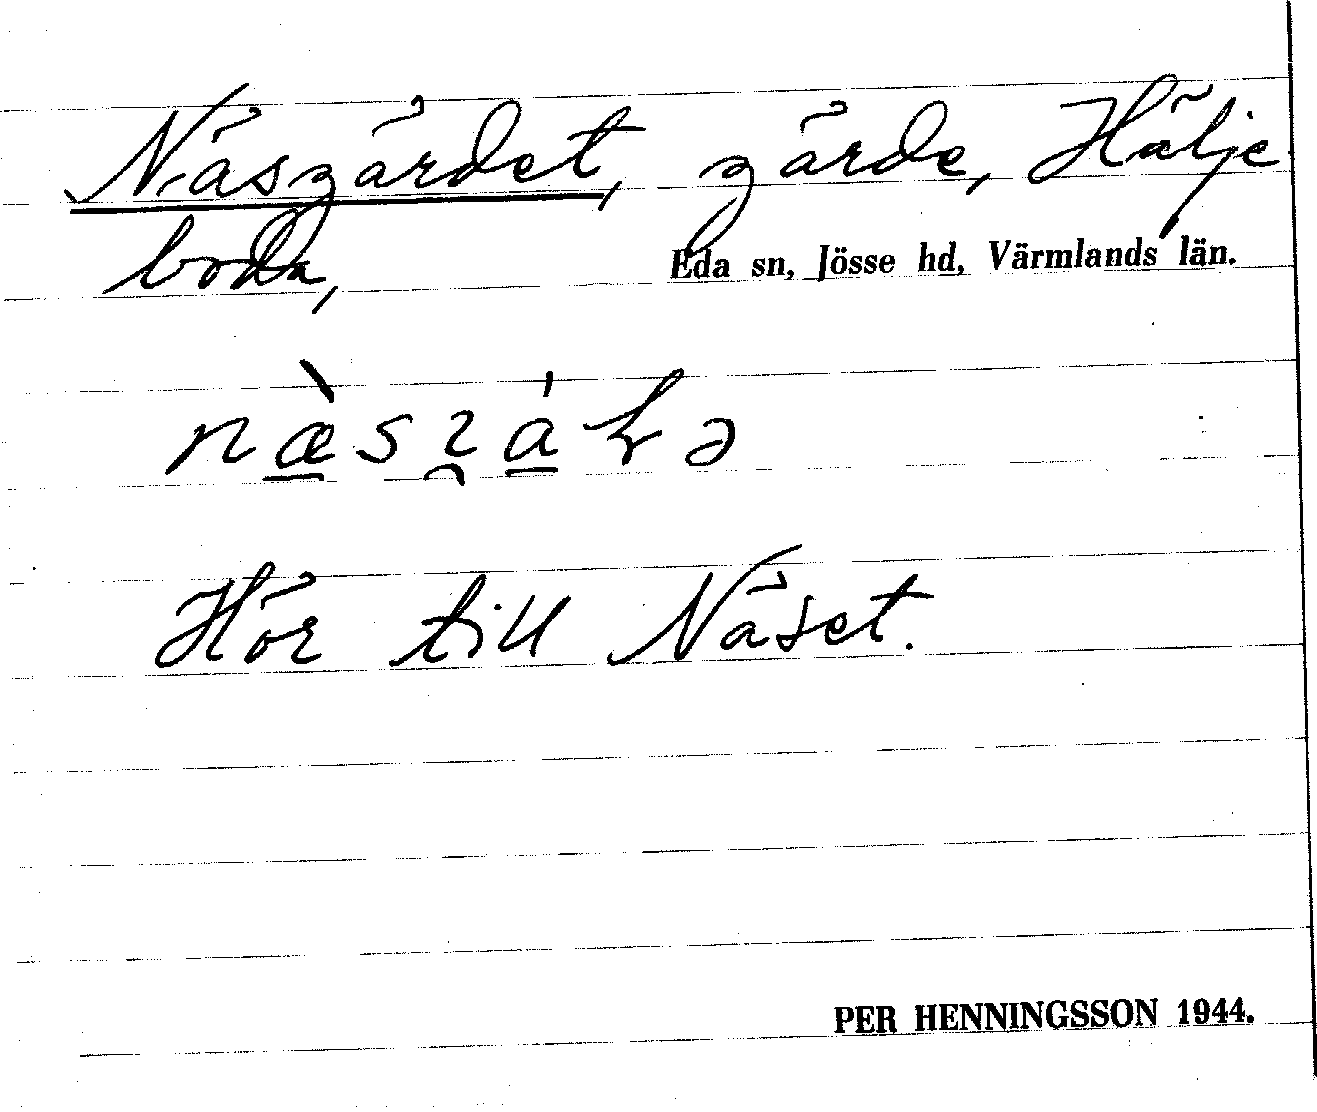 Näsgärdet, gärde, Hälje
boda,
Eda sn, Jösse hd, Värmlands län.
Hör till Näset.
PER HENNINGSSON 1944.